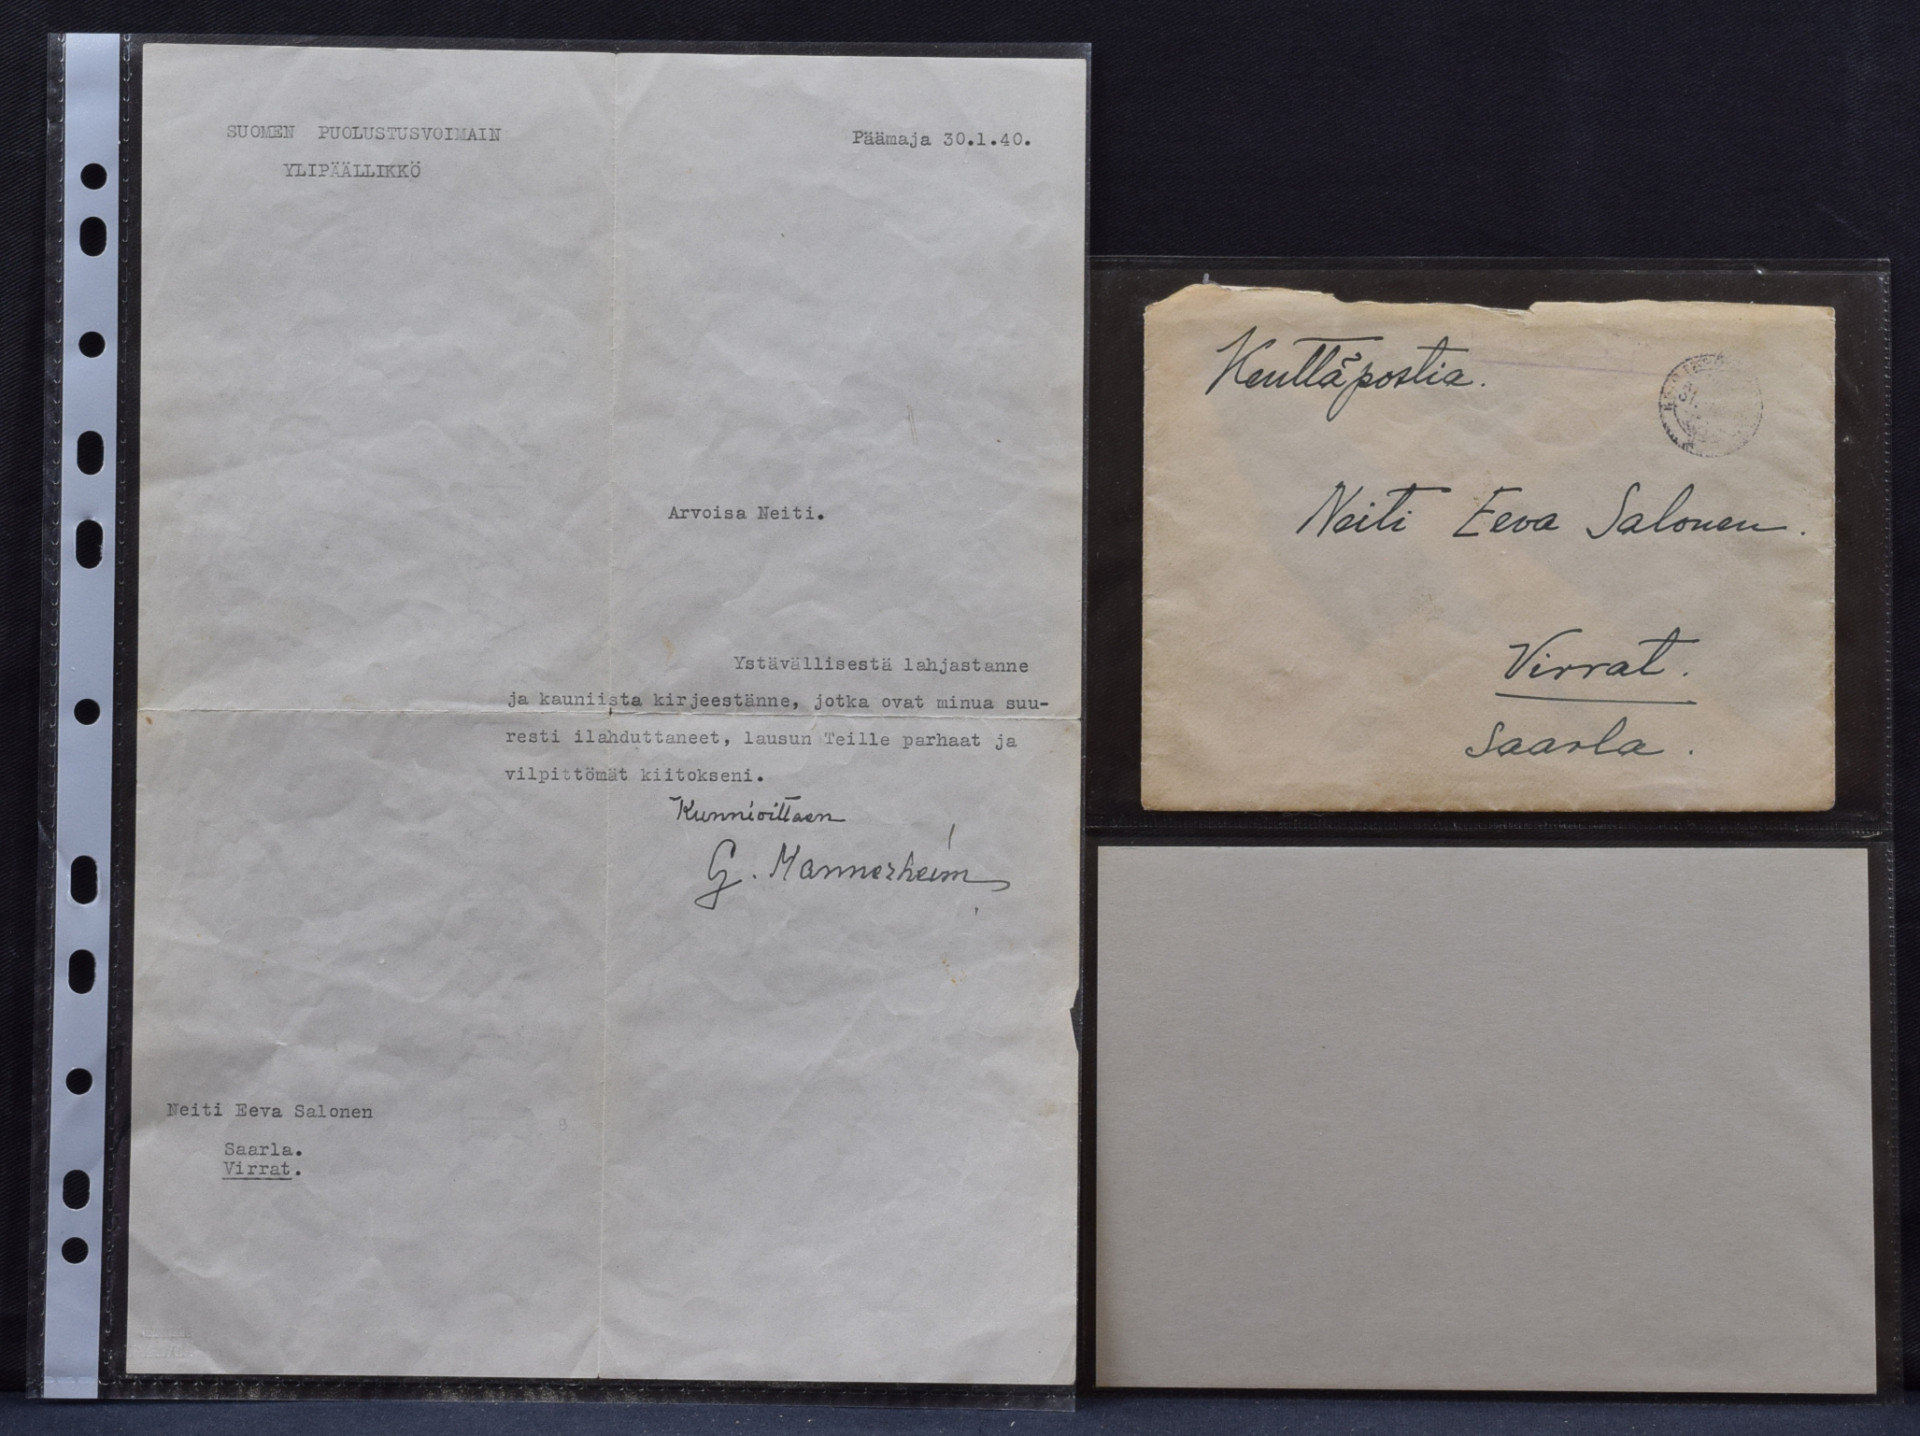 SUOMEN PUOLUSTUSVOIMAIN
YLIPÄÄLLIKKÖ
Päämaja 30.1.40.
Arvoisa Neiti.
Ystävällisestä lahjastanne
ja kauniista kirjeestänne, jotka ovat minua suu-
resti ilahduttaneet, lausun Teille parhaat ja
vilpittömät kiitokseni.
Kunnioittaen
G. Mannerheim
Neiti Eeva Salonen
Saarla.
Virrat.
Kenttäpostia.
Neiti Eeva Salonen.
Virrat.
Saarla.